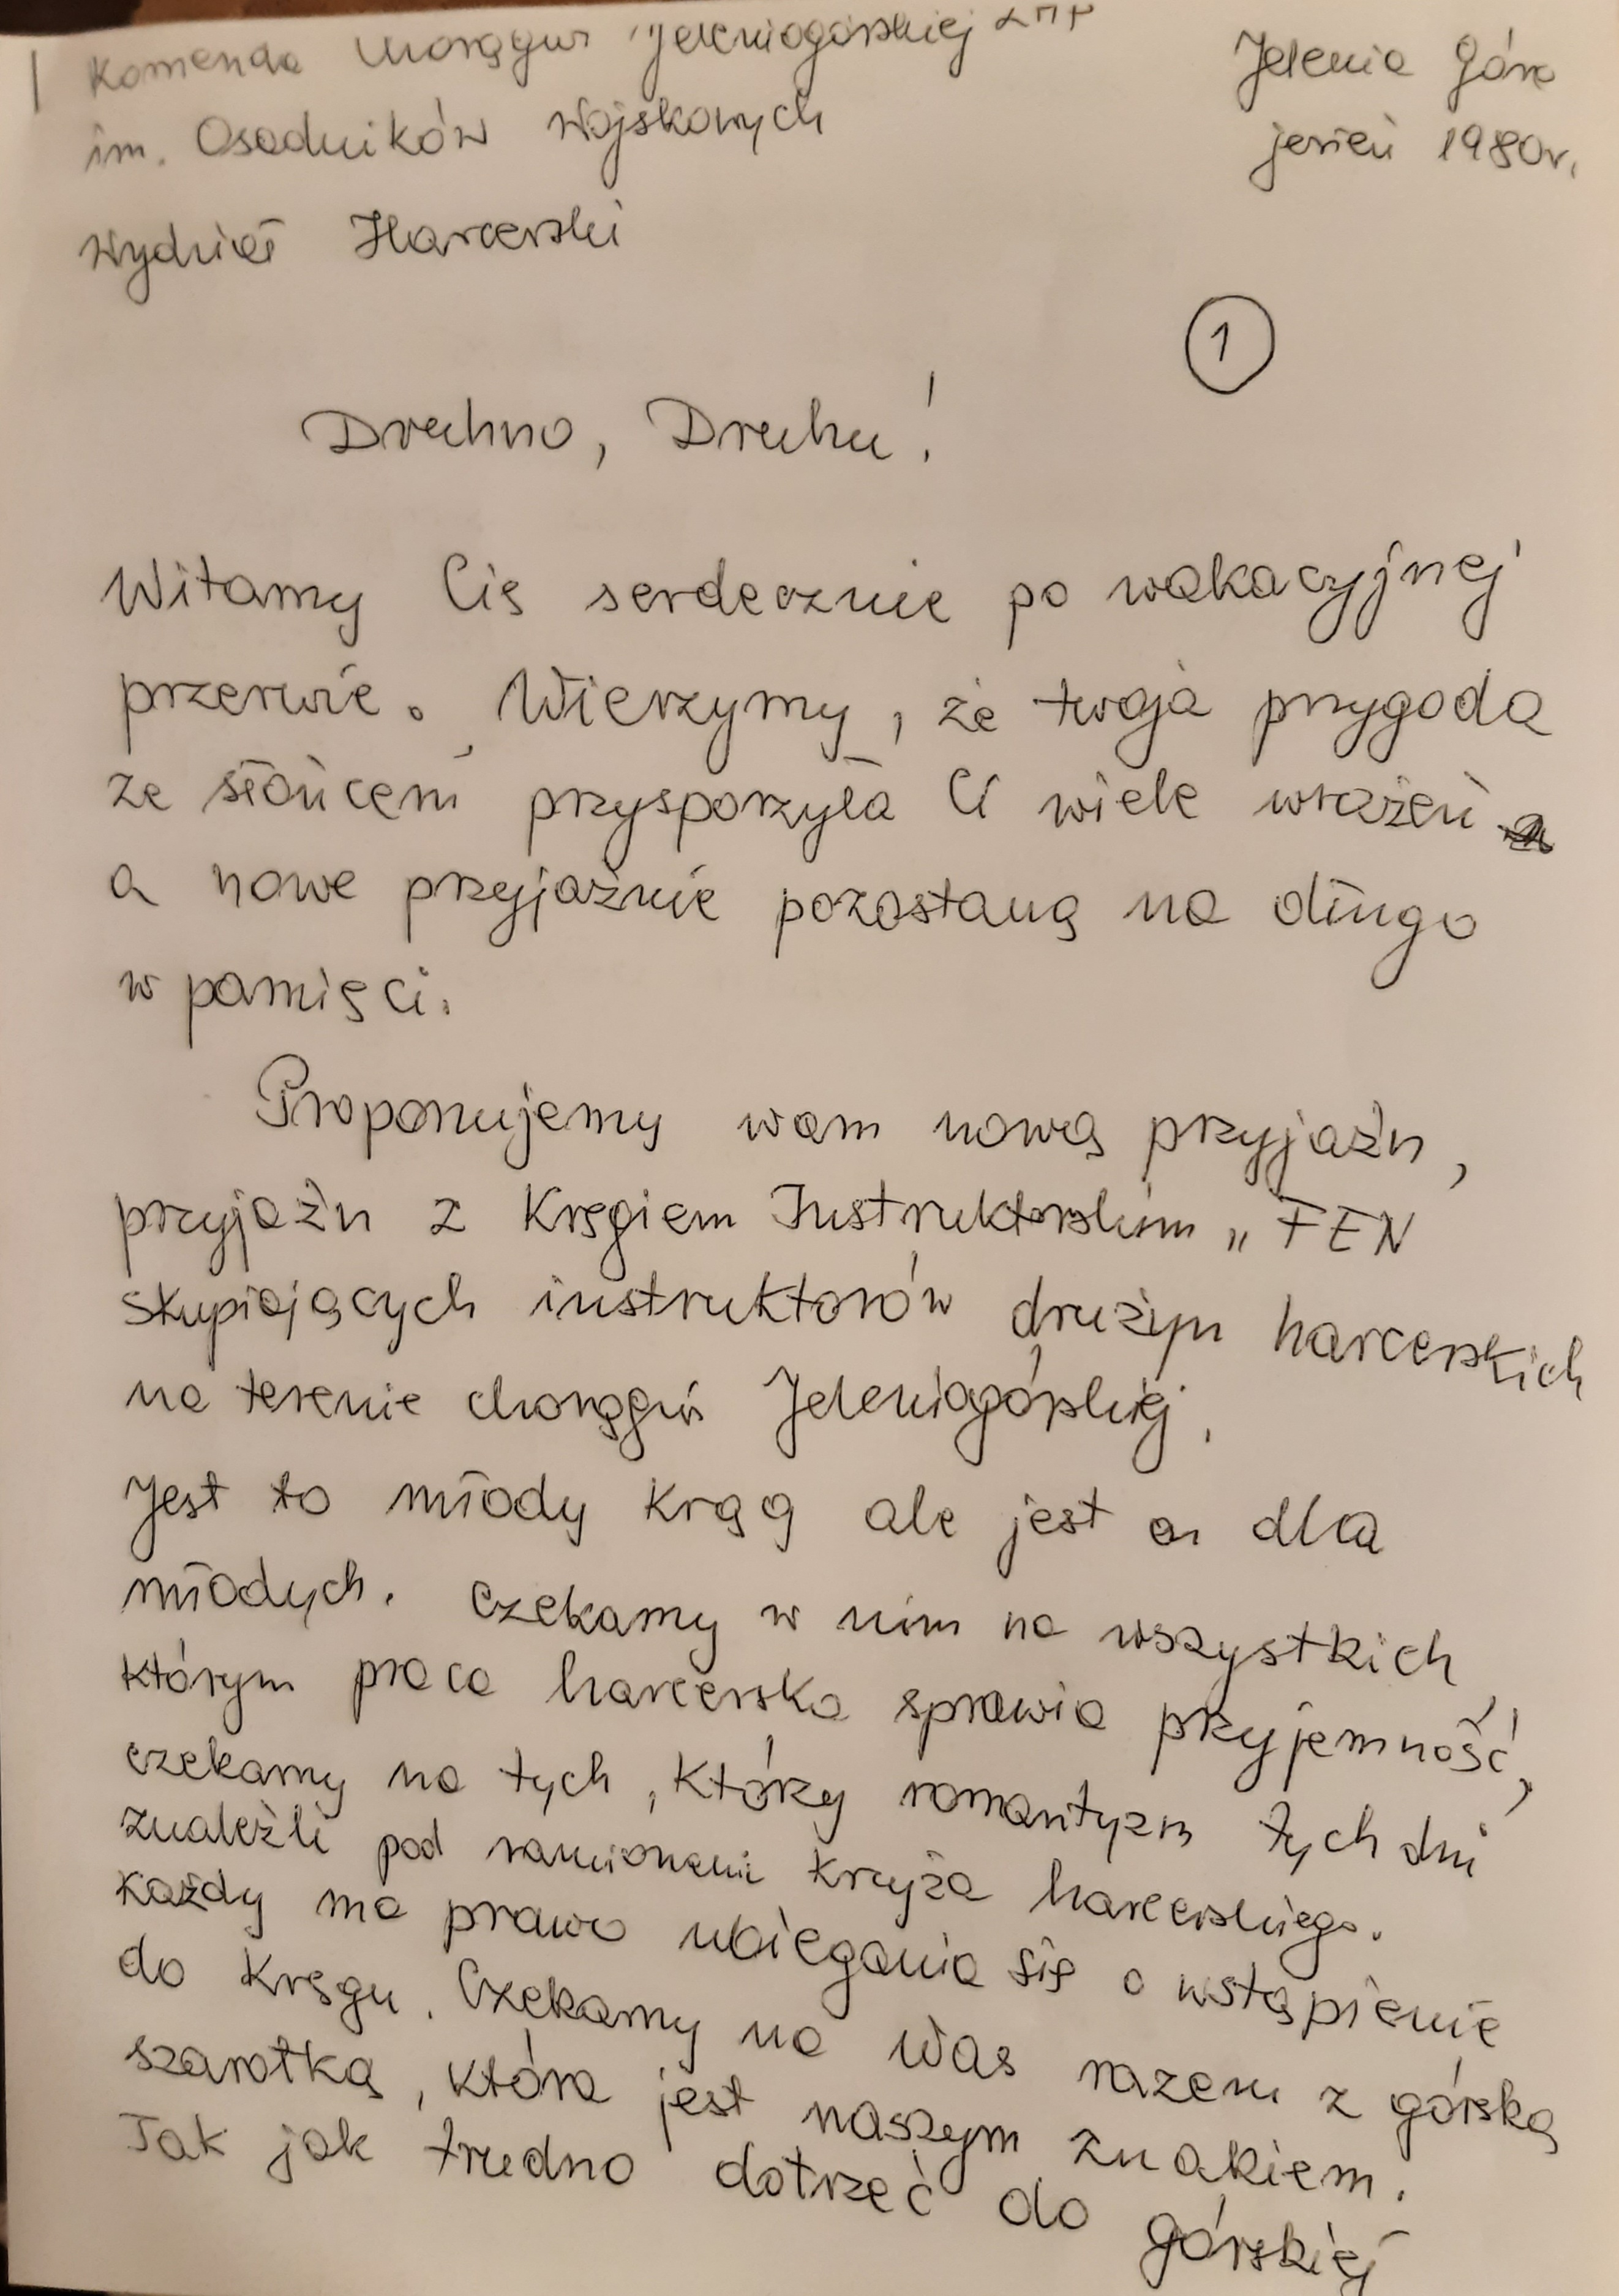 Komenda Chorągwi Jeleniogórskiej ZHP
Jelenia Góra
im. Osadników Wojskowych
jesień 1980r.
Wydział Harcerski
1
Druhno, Druhu!
Witamy Cię serdecznie po wakacyjnej
przerwie. Wierzymy, że twoja przygoda
ze słońcem przysporzyła Ci wiele wrażeń
a nowe przyjaźnie pozostaną na długo
w pamięci.
Proponujemy wam nową przyjaźń,
przyjaźń z Kręgiem Instruktorskim „FEN
skupiających instruktorów drużyn harcerskich
na terenie chorągwi Jeleniogórskiej.
Jest to młody krąg ale jest on dla
młodych. Czekamy w nim na wszystkich,
którym praca harcerska sprawia przyjemność,
czekamy na tych, którzy romantyzm tych dni
znaleźli pod ramionami krzyża harcerskiego.
Każdy ma prawo ubiegania się o wstąpienie
do Kręgu. Czekamy na Was razem z górską
szarotką, która jest naszym znakiem.
Tak jak trudno dotrzeć do górskiej